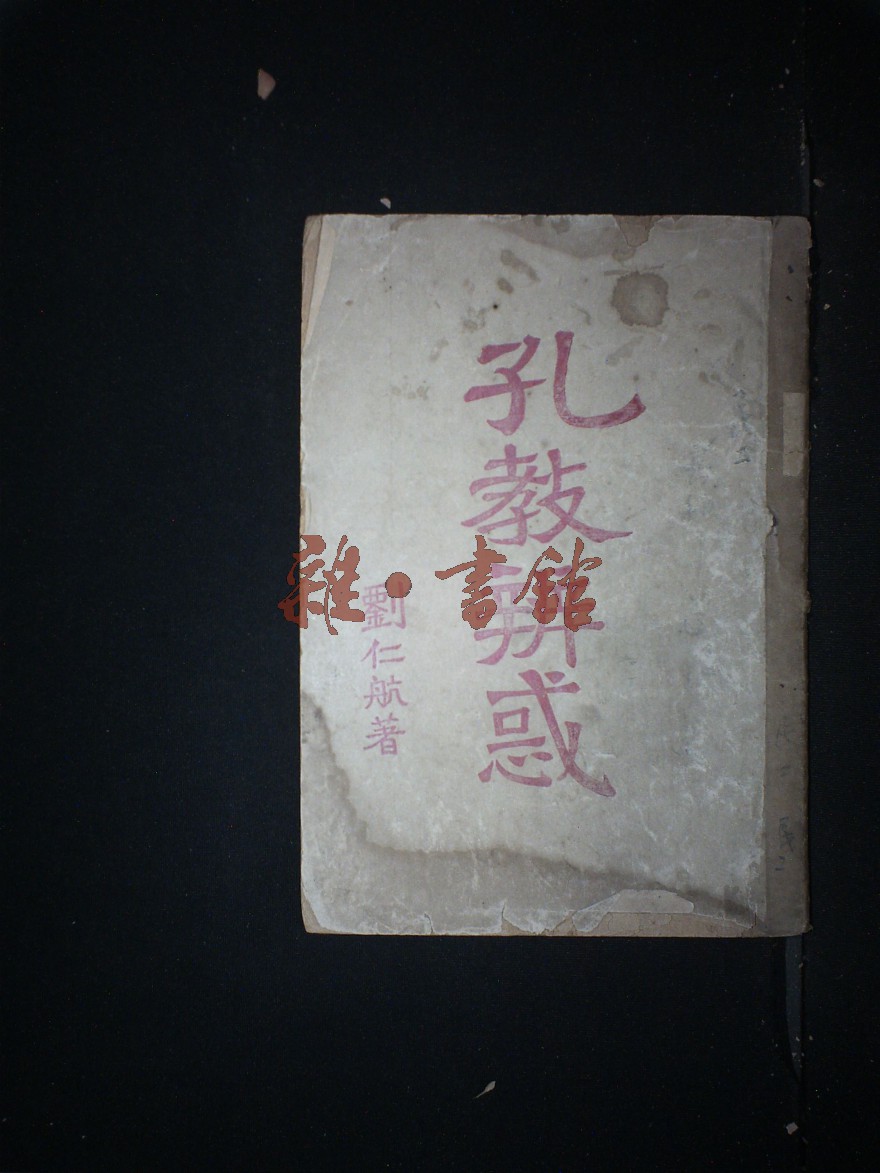 孔教辨惑
劉仁航著
雜·書館